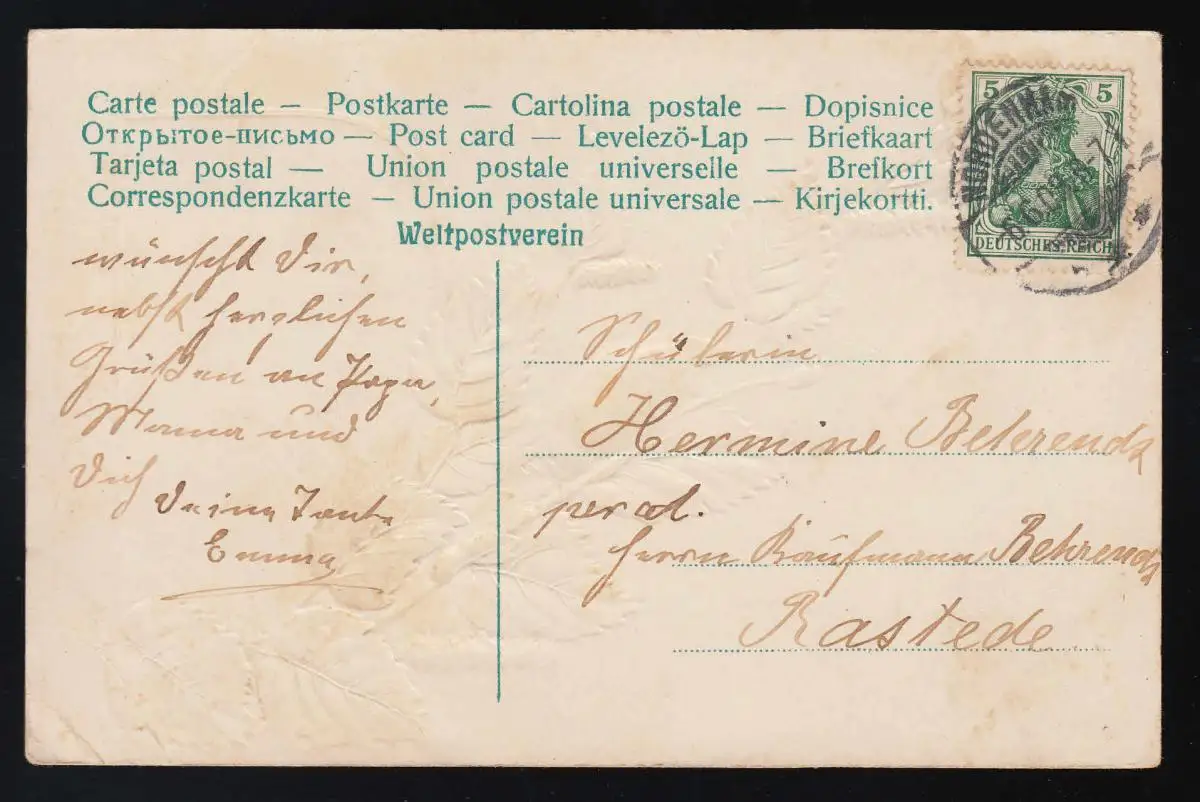 Carte postale — Postkarte — Cartolina postale — Dopisnice
Открытое-письмо — Post card — Levelezö-Lap — Briefkaart
Tarjeta postal — Union postale universelle — Brefkort
Correspondenzkarte — Union postale universale — Kirjekortti.
Weltpostverein
5 5
DEUTSCHES REICH
NORDENHAM
wünscht Dir,
nebst herzlichen
Grüßen an Papa,
Mama und
Dich
Deine Tante
Emma
Schülerin
Hermine Behrends
per ad.
Herrn Kaufmann Behrends
Rastede